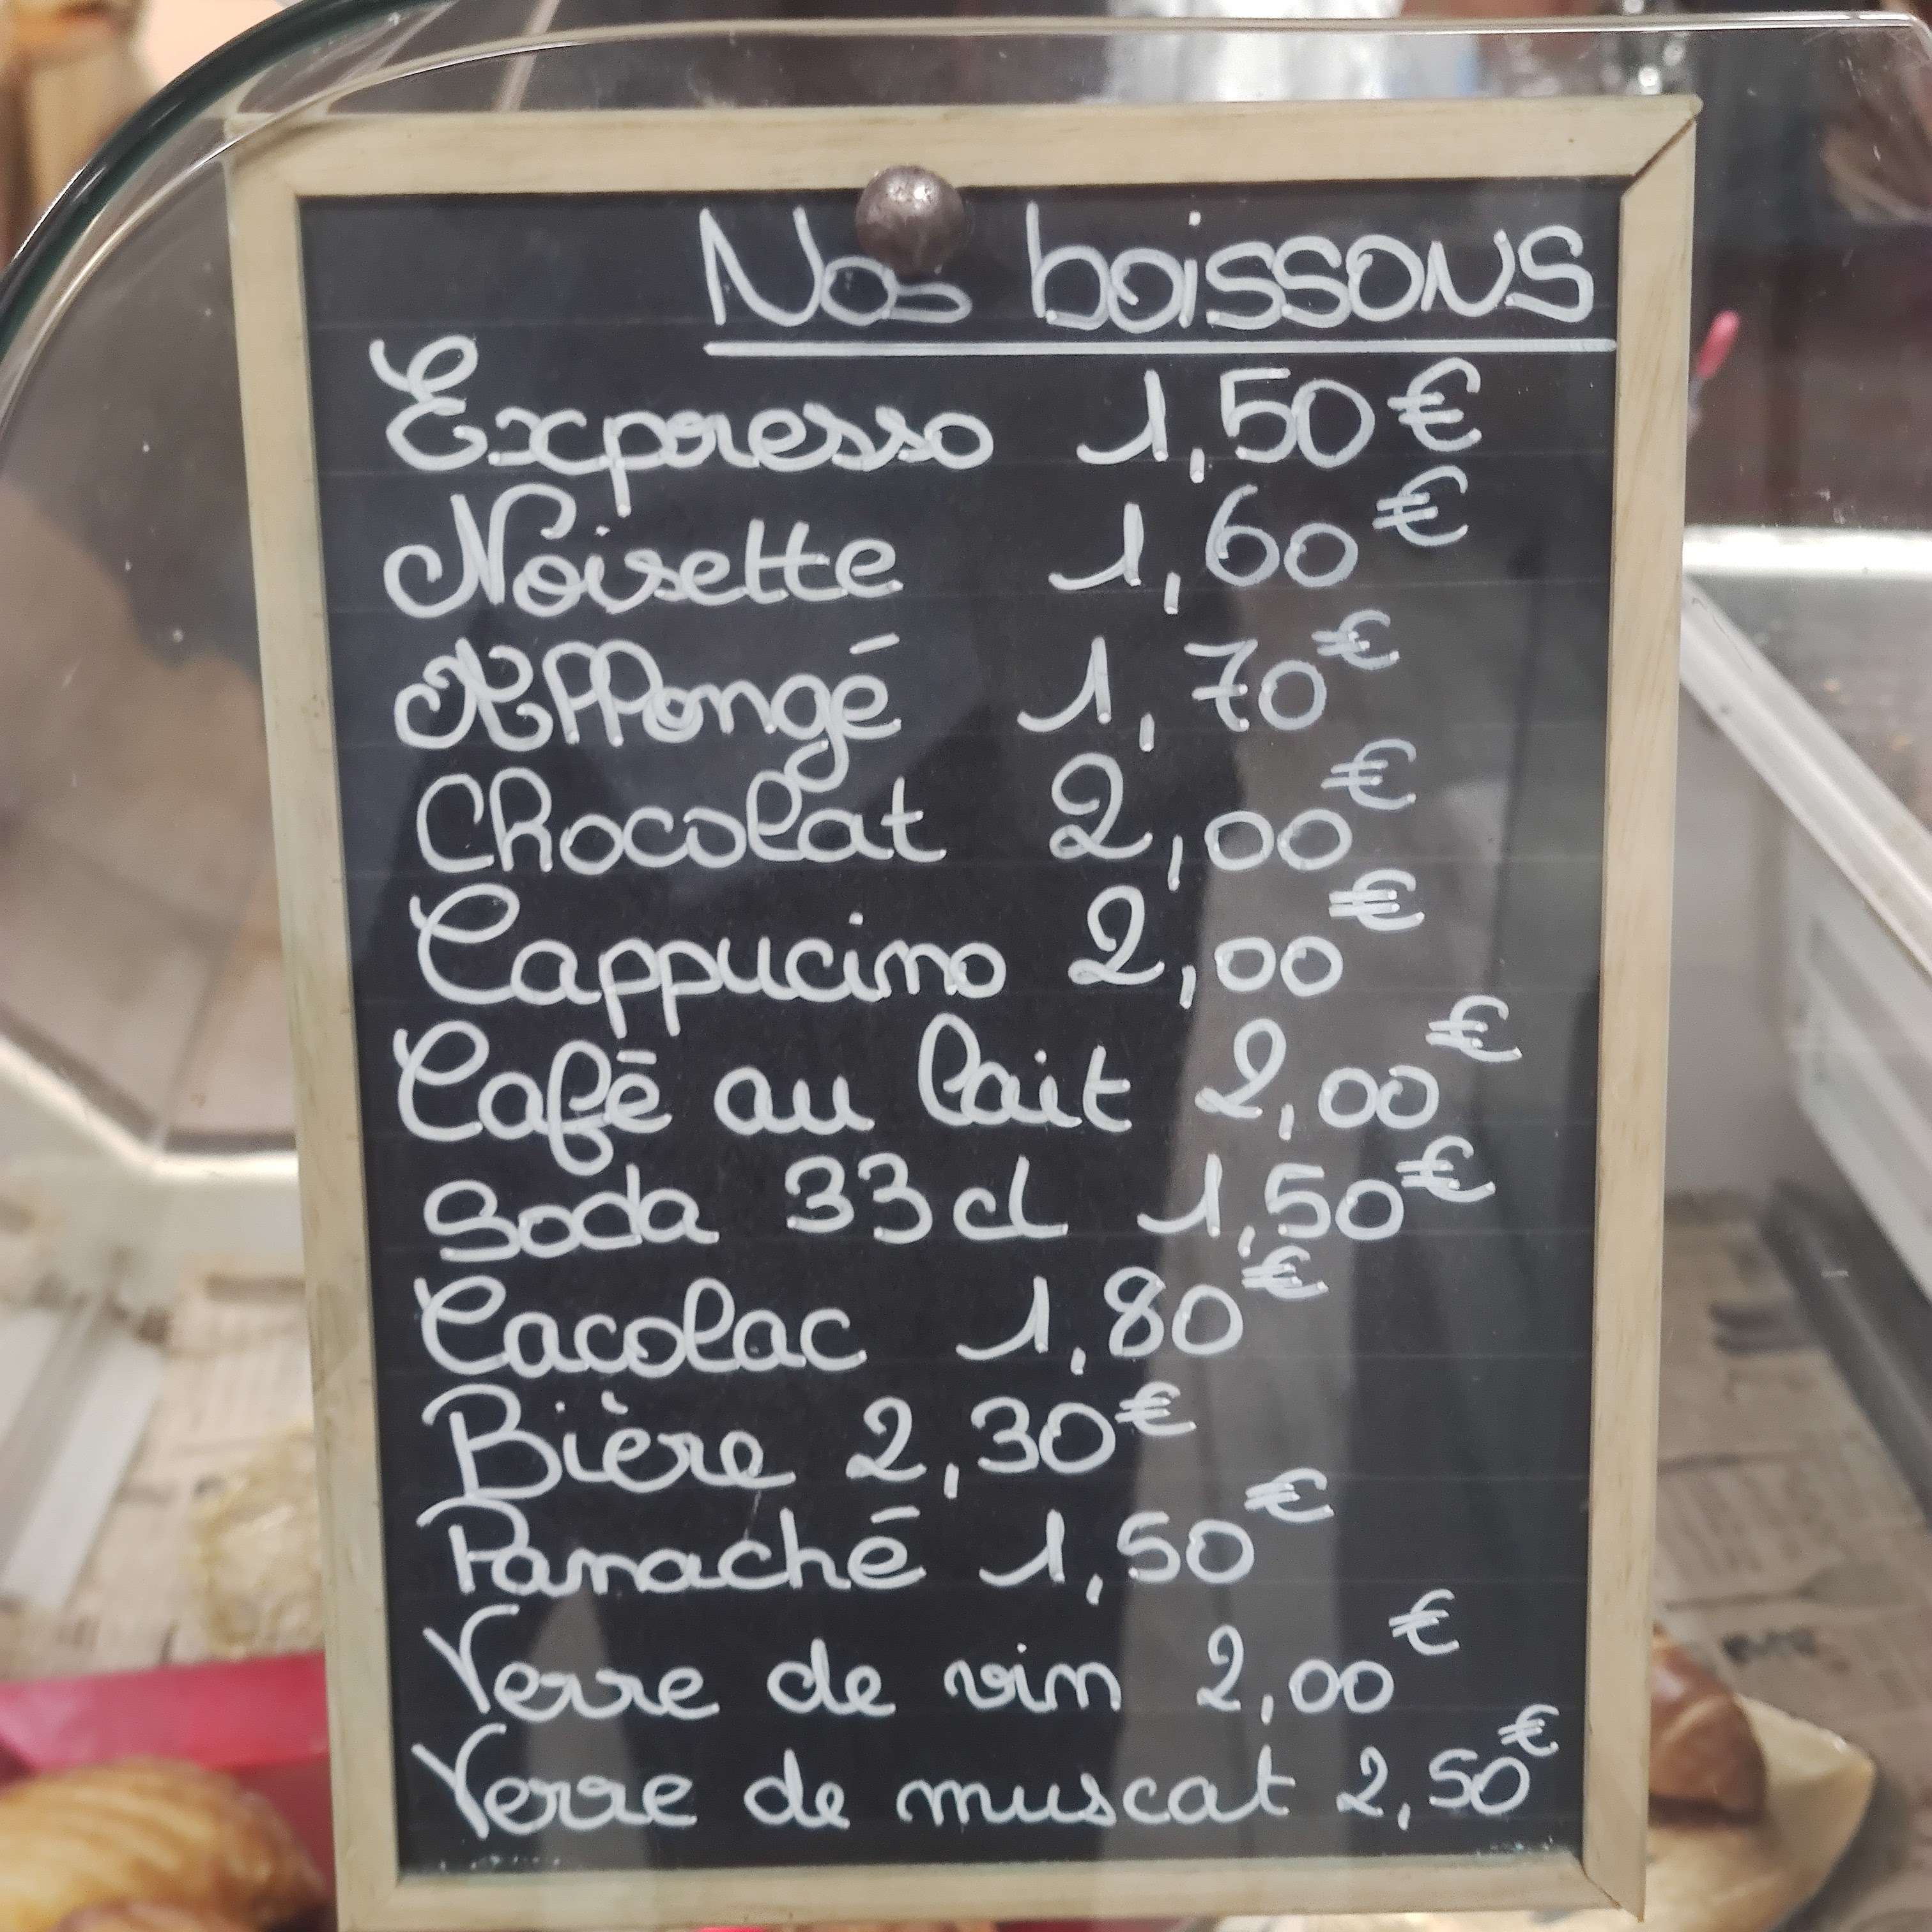 Nos boissons
Expresso 1,50€
Noisette 1,60€
Allongé 1,70€
Chocolat 2,00€
Cappucino 2,00€
Café au lait 2,00€
Soda 33cl 1,50€
Cacolac 1,80€
Bière 2,30€
Panaché 1,50€
Verre de vin 2,00€
Verre de muscat 2,50€